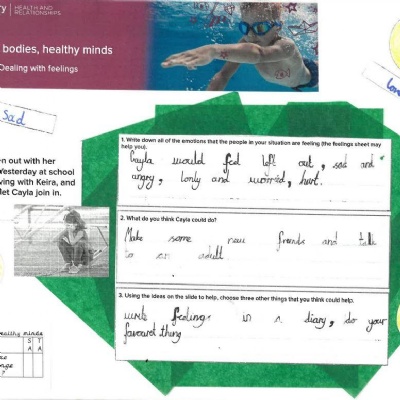 ry | HEALTH AND
RELATIONSHIPS
bodies, healthy minds
Dealing with feelings
Sad
en out with her
Yesterday at school
ving with Keira, and
let Cayla join in.
1. Write down all of the emotions that the people in your situation are feeling (the feelings sheet may
help you).
Cayla would feel left out, sad and
angry, lonly and worried, hurt.
2. What do you think Cayla could do?
Make some new friends and talk
to an adult
3. Using the ideas on the slide to help, choose three other things that you think could help.
feelings in a diary, do your
favourit thing
healthy minds
S T
A A
nge
?